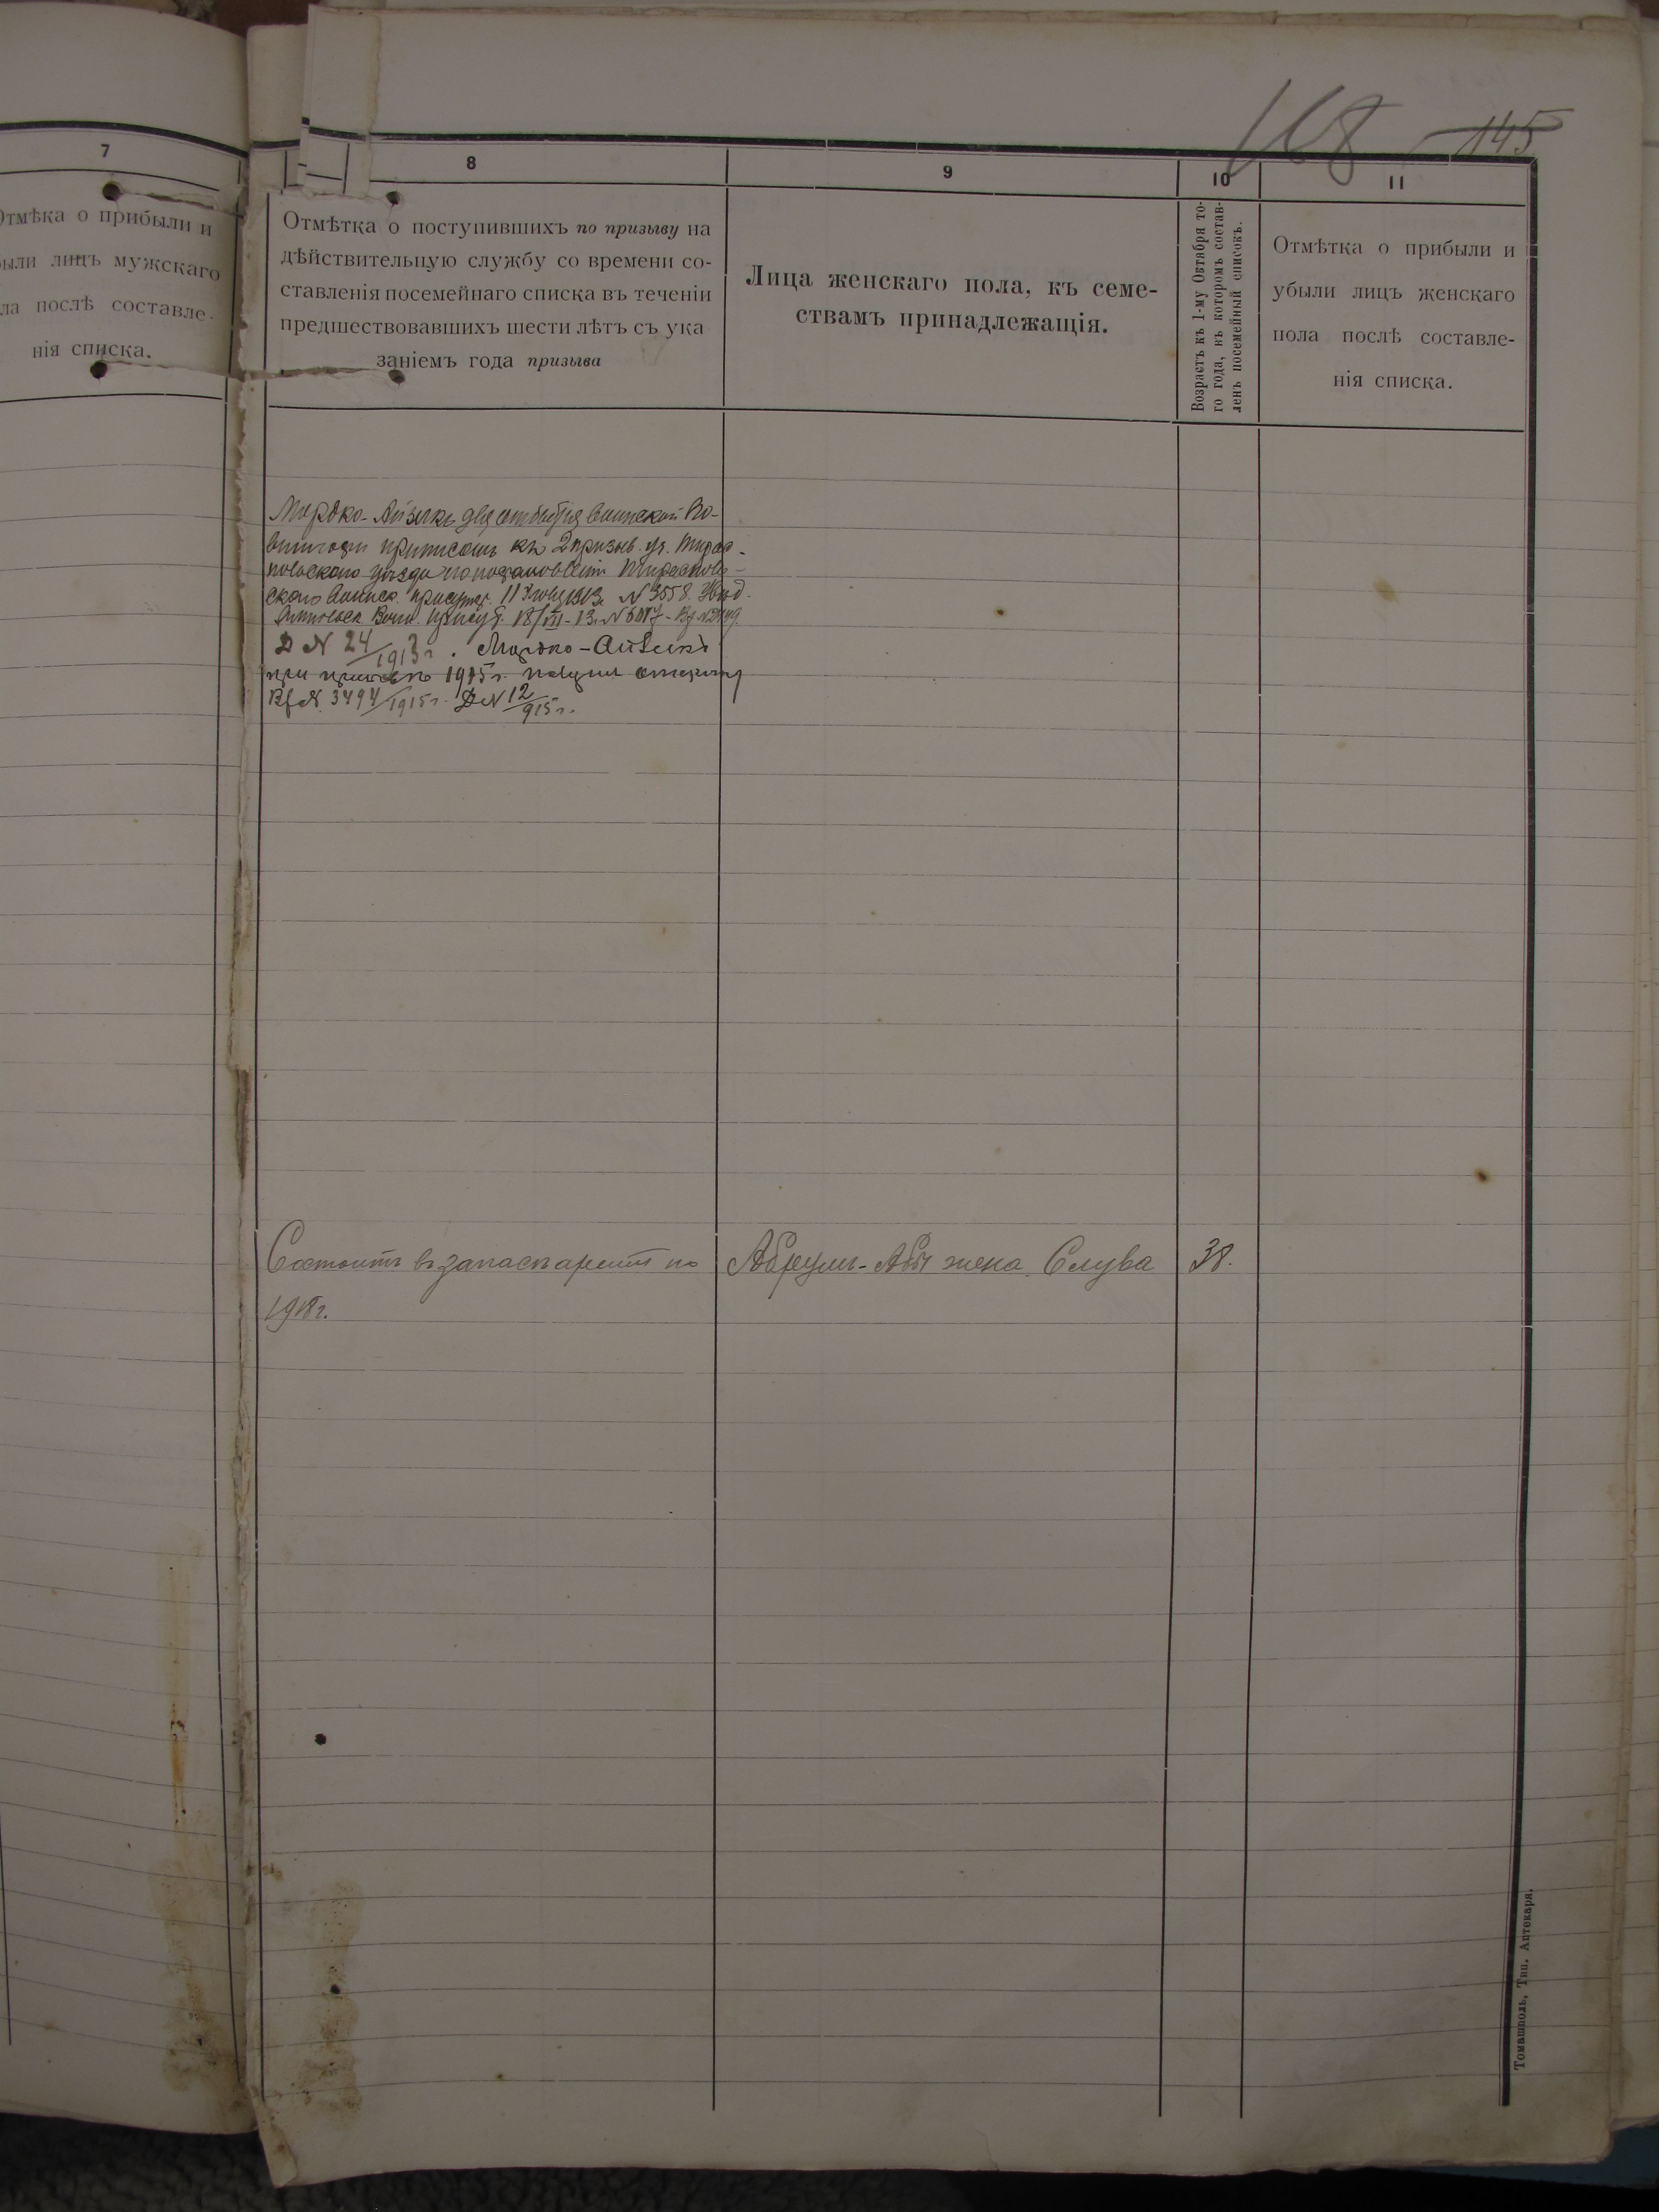 168 145
7
Отмѣтка о прибыли и
были лицъ мужскаго
ла послѣ составле-
нія списка.
8
Отмѣтка о поступившихъ по призыву на
дѣйствительную службу со времени со-
ставленія посемейнаго списка въ теченіи
предшествовавшихъ шести лѣтъ съ ука
заніемъ года призыва
9
Лица женскаго пола, къ семе-
ствамъ принадлежащія.
10
Возрастъ къ 1-му Октября то-
го года, къ которомъ состав-
ленъ посемейный списокъ.
11
Отмѣтка о прибыли и
убыли лицъ женскаго
пола послѣ составле-
нія списка.
Мордко-Айзикъ для отбытія воинской По-
винности приписанъ къ 2 призыв. уч. Тирас-
польскаго уѣзда по
скаго Воинск. присутст. 11 1913 г. N 3558.
Воин. Присут. 18/VIII-13 г. N
Д N 24/1913 г. Мордко-Айзикъ
при 1915 г.
N 3494/1915 г. Д N 12/915 г.
Состоитъ въ запасѣ арміи по
1918 г.
Абрумъ-Абы жена Слува
38.
Томашполь, Тип. Аптекаря.